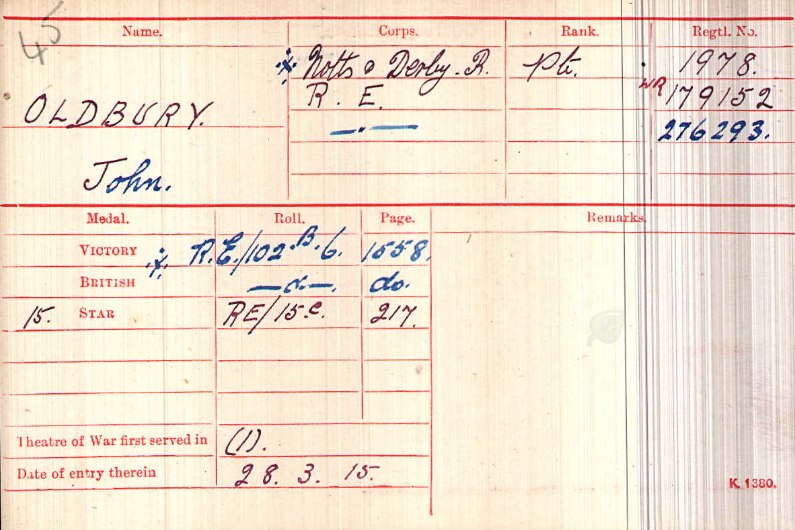 45
Name. Corps. Rank. Regtl. No.
Notts & Derby. R. Pte. 1978.
OLDBURY. R. E. WR 179152
—·— 276293.
John.
Medal. Roll. Page. Remarks.
VICTORY R.E/102.B.6. 1558.
BRITISH —d—. do.
15. STAR RE/15.C. 217.
Theatre of War first served in (1).
Date of entry therein 28. 3. 15.
K. 1380.